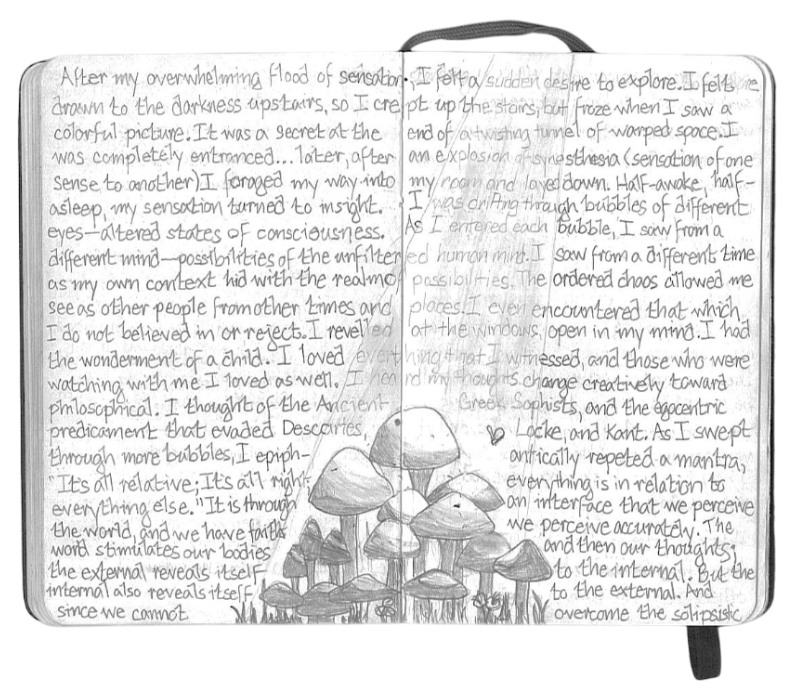 After my overwhelming flood of sensation, I felt a sudden desire to explore. I felt
drawn to the darkness upstairs, so I crept up the stairs, but froze when I saw a
colorful picture. It was a secret at the end of a twisting tunnel of warped space. I
was completely entranced...later, after an explosion of synesthesia (sensation of one
sense to another) I foraged my way into my room and layed down. Half-awake, half-
asleep, my sensation turned to insight. I was drifting through bubbles of different
eyes—altered states of consciousness. As I entered each bubble, I saw from a
different mind—possibilities of the unfiltered human mint. I saw from a different time
as my own context hid with the realm of possibilities. The ordered chaos allowed me
see as other people from other times and places. I even encountered that which
I do not believed in or reject. I revelled at the windows open in my mind. I had
the wonderment of a child. I loved everything that I witnessed, and those who were
watching with me I loved as well. I heard my thoughts change creatively toward
philosophical. I thought of the Ancient Greek Sophists, and the egocentric
predicament that evaded Descartes, Locke, and Kant. As I swept
through more bubbles, I epiph- antically repeted a mantra,
"It's all relative; It's all right: everything is in relation to
everything else." It is through an interface that we perceive
the world, and we have faith we perceive accurately. The
word stimulates our bodies and then our thoughts;
the external reveals itself to the internal. But the
internal also reveals itself to the external. And
since we cannot overcome the solipsistic